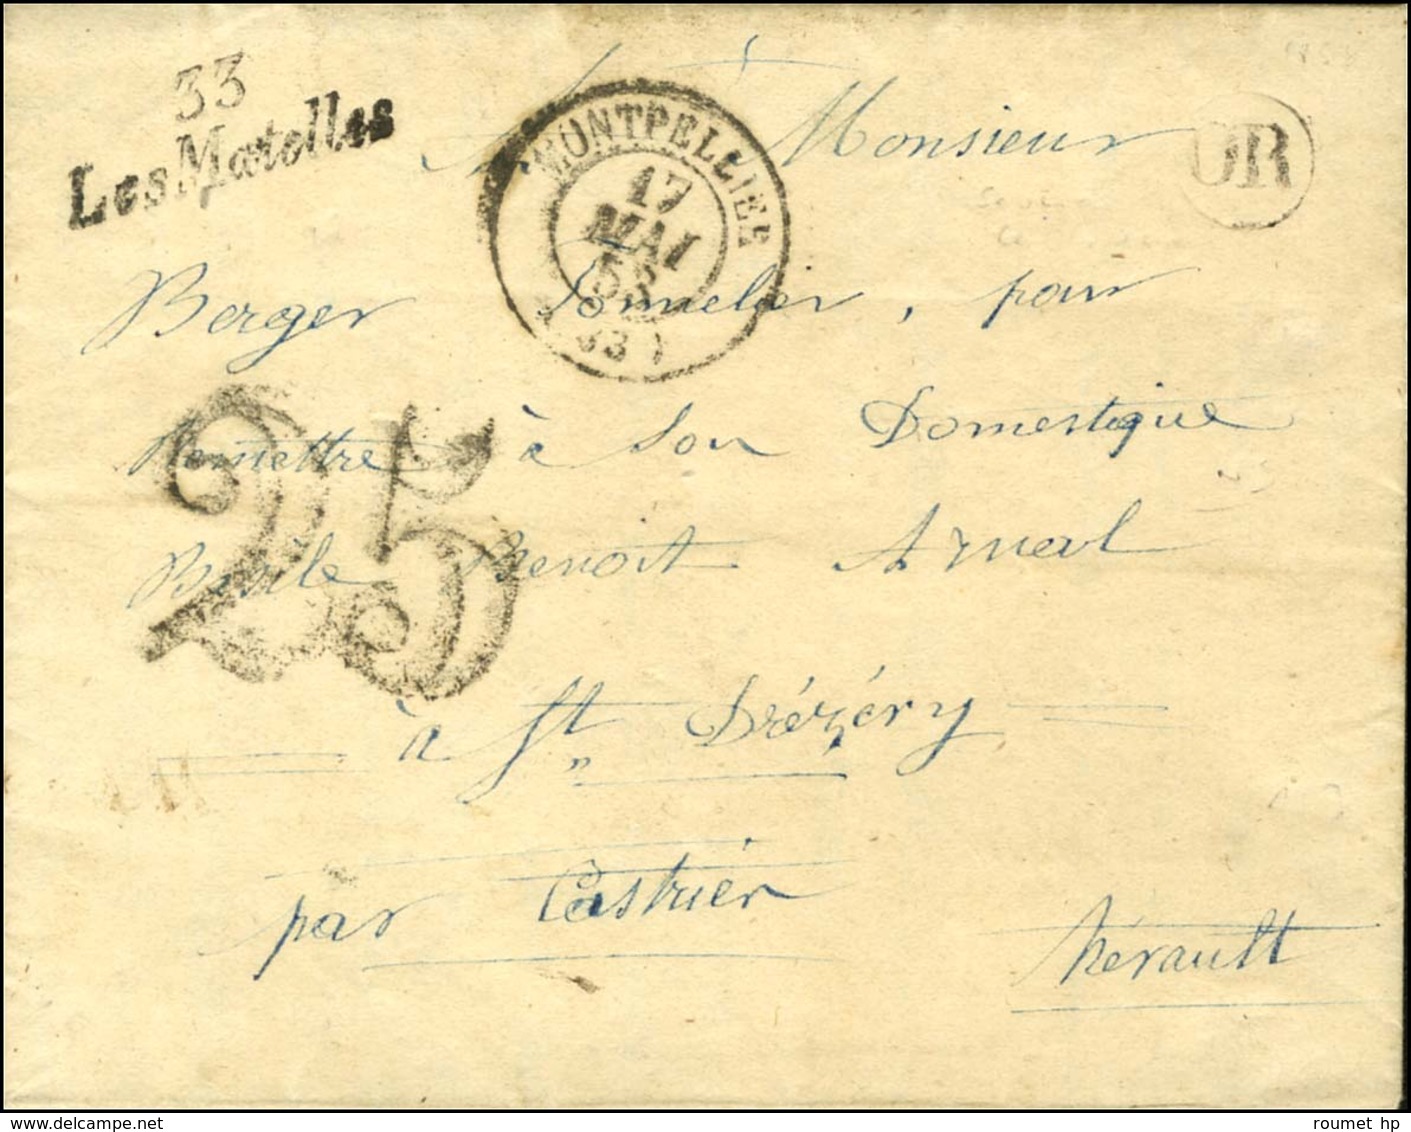 33
Les Matelles
MONTPELLIER
17
MAI
53
(33)
OR
A Monsieur
Berger Tonnelier, pour
Remettre à son Domestique
Basile Benoit Arnal
à St Drézéry
par Castrier
hérault
25
roumet hp